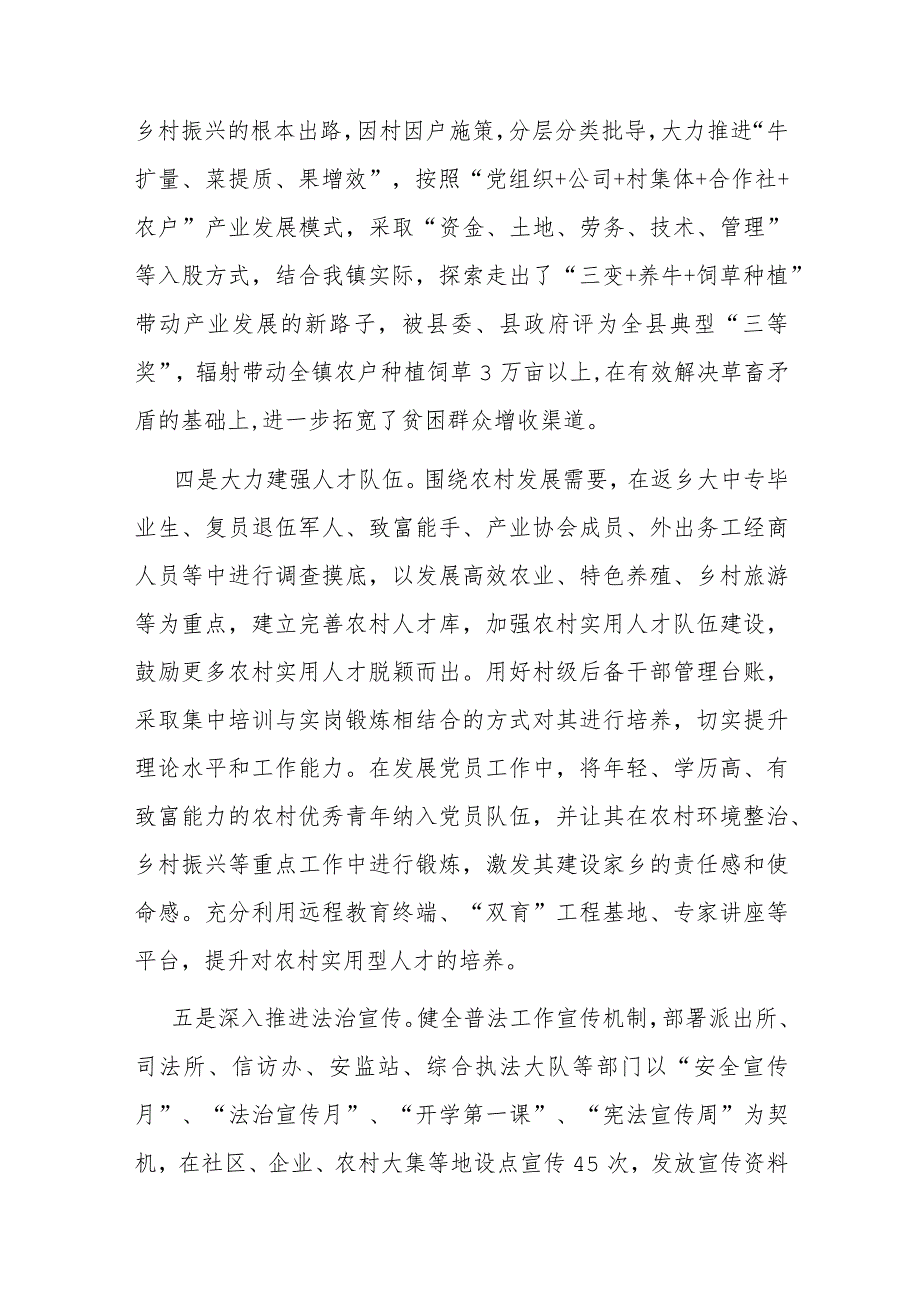 乡村振兴的根本出路,因村因户施策,分层分类批导,大力推进“牛
扩量、菜提质、果增效”，按照“党组织+公司+村集体+合作社+
农户”产业发展模式，采取“资金、土地、劳务、技术、管理”
等入股方式，结合我镇实际，探索走出了“三变+养牛+饲草种植”
带动产业发展的新路子，被县委、县政府评为全县典型“三等
奖”，辐射带动全镇农户种植饲草 3 万亩以上,在有效解决草畜矛
盾的基础上,进一步拓宽了贫困群众增收渠道。
四是大力建强人才队伍。围绕农村发展需要，在返乡大中专毕
业生、复员退伍军人、致富能手、产业协会成员、外出务工经商
人员等中进行调查摸底，以发展高效农业、特色养殖、乡村旅游
等为重点，建立完善农村人才库，加强农村实用人才队伍建设，
鼓励更多农村实用人才脱颖而出。用好村级后备干部管理台账，
采取集中培训与实岗锻炼相结合的方式对其进行培养，切实提升
理论水平和工作能力。在发展党员工作中，将年轻、学历高、有
致富能力的农村优秀青年纳入党员队伍，并让其在农村环境整治、
乡村振兴等重点工作中进行锻炼，激发其建设家乡的责任感和使
命感。充分利用远程教育终端、“双育”工程基地、专家讲座等
平台，提升对农村实用型人才的培养。
五是深入推进法治宣传。健全普法工作宣传机制,部署派出所、
司法所、信访办、安监站、综合执法大队等部门以“安全宣传
月”、“法治宣传月”、“开学第一课”、“宪法宣传周”为契
机，在社区、企业、农村大集等地设点宣传 45 次，发放宣传资料